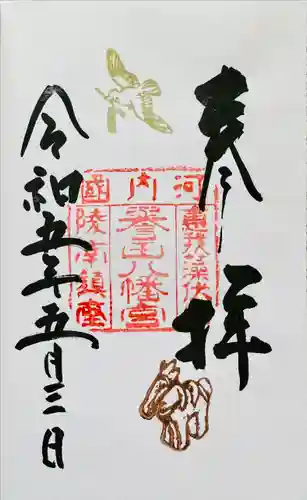 奉拝
河内國
惠我藻伏
譽田八幡宮
陵南鎮座
令和五年五月三日